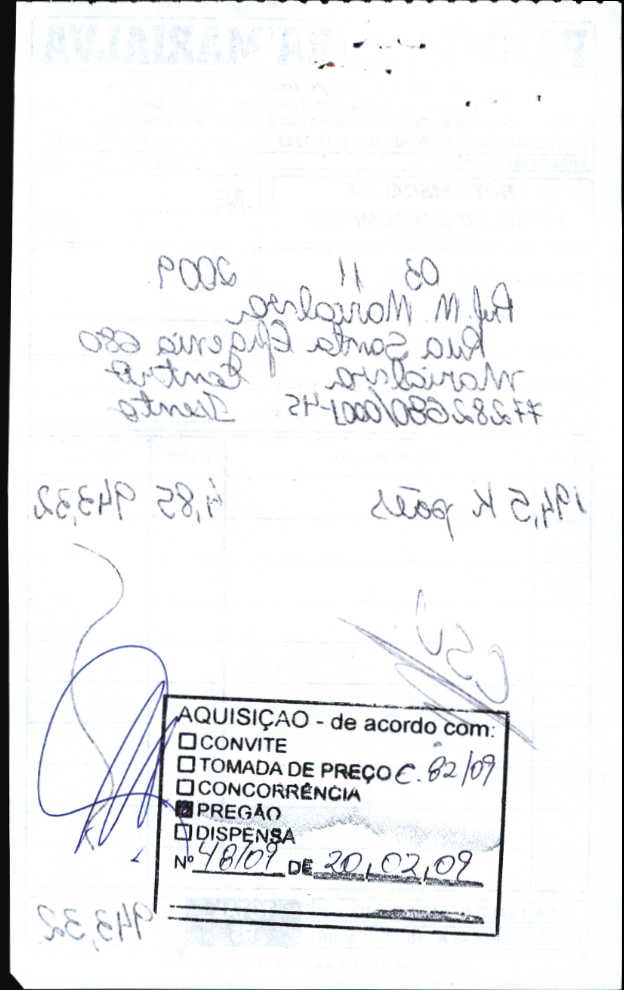 03 11 2009
Pref. M. Marialva
Rua Santa Efigenia 680
Marialva Centro
77282680/0001-45 Isento
194,5 K pães 4,85 943,32
AQUISIÇÃO - de acordo com:
CONVITE
TOMADA DE PREÇO C. 82/09
CONCORRÊNCIA
PREGÃO
DISPENSA
Nº 48/09 DE 20,02,09
943,32